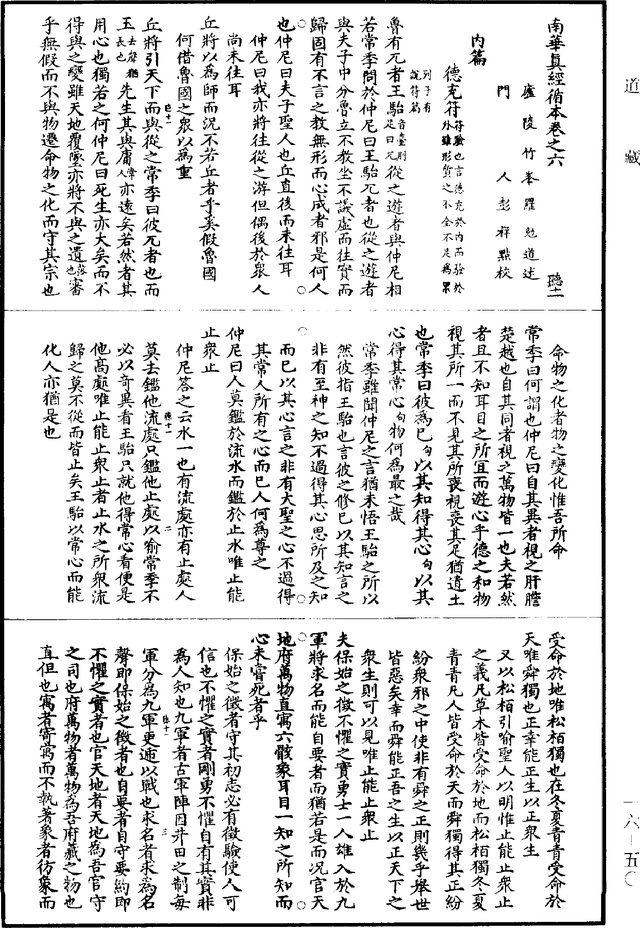 道藏
南華眞經循本卷之六　聽十二
廬陵竹峯羅勉道述
門人彭祥點校
內篇
德充符
列子有
說符篇
符驗也言德充於內而驗於
外雖形質之不全不足爲累
魯有兀者王駘音臺刖足曰兀從之遊者與仲尼相
若常季問於仲尼曰王駘兀者也從之遊者
與夫子中分魯立不教坐不議虛而往實而
歸固有不言之教無形而心成者邪是何人
也仲尼曰夫子聖人也丘直後而未往耳
仲尼曰我亦將往從之游但偶後於衆人
尚未往耳
丘將以爲師而況不若丘者乎奚假魯國
何借魯國之衆以爲重
丘將引天下而與從之常季曰彼兀者也而
王去聲長也先生其與庸常人亦遠矣若然者其
用心也獨若之何仲尼曰死生亦大矣而不
得與之變雖天地覆墜亦將不與之遺落也審
乎無假而不與物遷命物之化而守其宗也
命物之化者物之變化惟吾所命
常季曰何謂也仲尼曰自其異者視之肝膽
楚越也自其同者視之萬物皆一也夫若然
者且不知耳目之所宜而遊心乎德之和物
視其所一而不見其所喪視喪其足猶遺土
也常季曰彼爲已句以其知得其心句以其
心得其常心句物何爲最之哉
常季雖聞仲尼之言猶未悟王駘之所以
然彼指王駘也言彼之修已以其知言之
非有至神之知不過得其心思所及之知
而已以其心言之非有大聖之心不過得
其常人所有之心而已人何爲尊之
仲尼曰人莫鑑於流水而鑑於止水唯止能
止衆止
仲尼荅之云水一也有流處亦有止處人
莫去鑑他流處只鑑他止處以喻常季不
必以奇異看王駘只就他得常心看便是
他高處唯止能止衆止者止水之所衆流
歸之莫不從而皆止矣王駘以常心而能
化人亦猶是也
受命於地唯松栢獨也在冬夏青青受命於
天唯舜獨也正幸能正生以正衆生
又以松栢引喻聖人以明惟止能止衆止
之義凡草木皆受命於地而松栢獨冬夏
青青凡人皆受命於天而舜獨得其正紛
紛衆邪之中使非有舜之正則幾乎舉世
皆惡矣幸而舜能正吾之生以正天下之
衆生則可以見唯止能止衆止
夫保始之徵不懼之實勇士一人雄入於九
軍將求名而能自要者而猶若是而況官天
地府萬物直寓六骸象耳目一知之所知而
心未嘗死者乎
保始之徵者守其初志必有徵驗使人可
信也不懼之實者剛勇不懼自有其實非
爲人知也九軍者古軍陣因井田之制每
軍分爲九軍更逓以戰也求名者求爲名
聲即保始之徵者也自要者自守要約即
不懼之實者也官天地者天地爲吾官守
之司也府萬物者萬物爲吾府藏之物也
直但也寓者寄寓而不執著象者彷象而
一六—五〇